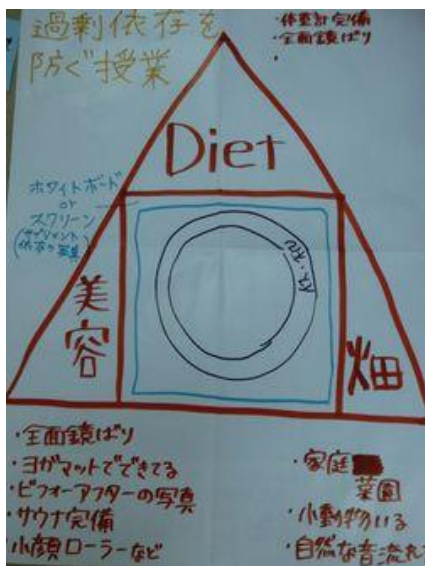 過剰依存を
防ぐ授業
・体重計完備
・全面鏡ばり
・
Diet
ホワイトボード
or
スクリーン
(サプリメント
依存の写真)
美容
畑
・全面鏡ばり
・ヨガマットでできてる
・ビフォーアフターの写真
・サウナ完備
・小顔ローラーなど
・家庭
菜園
・小動物いる
・自然な音流れ